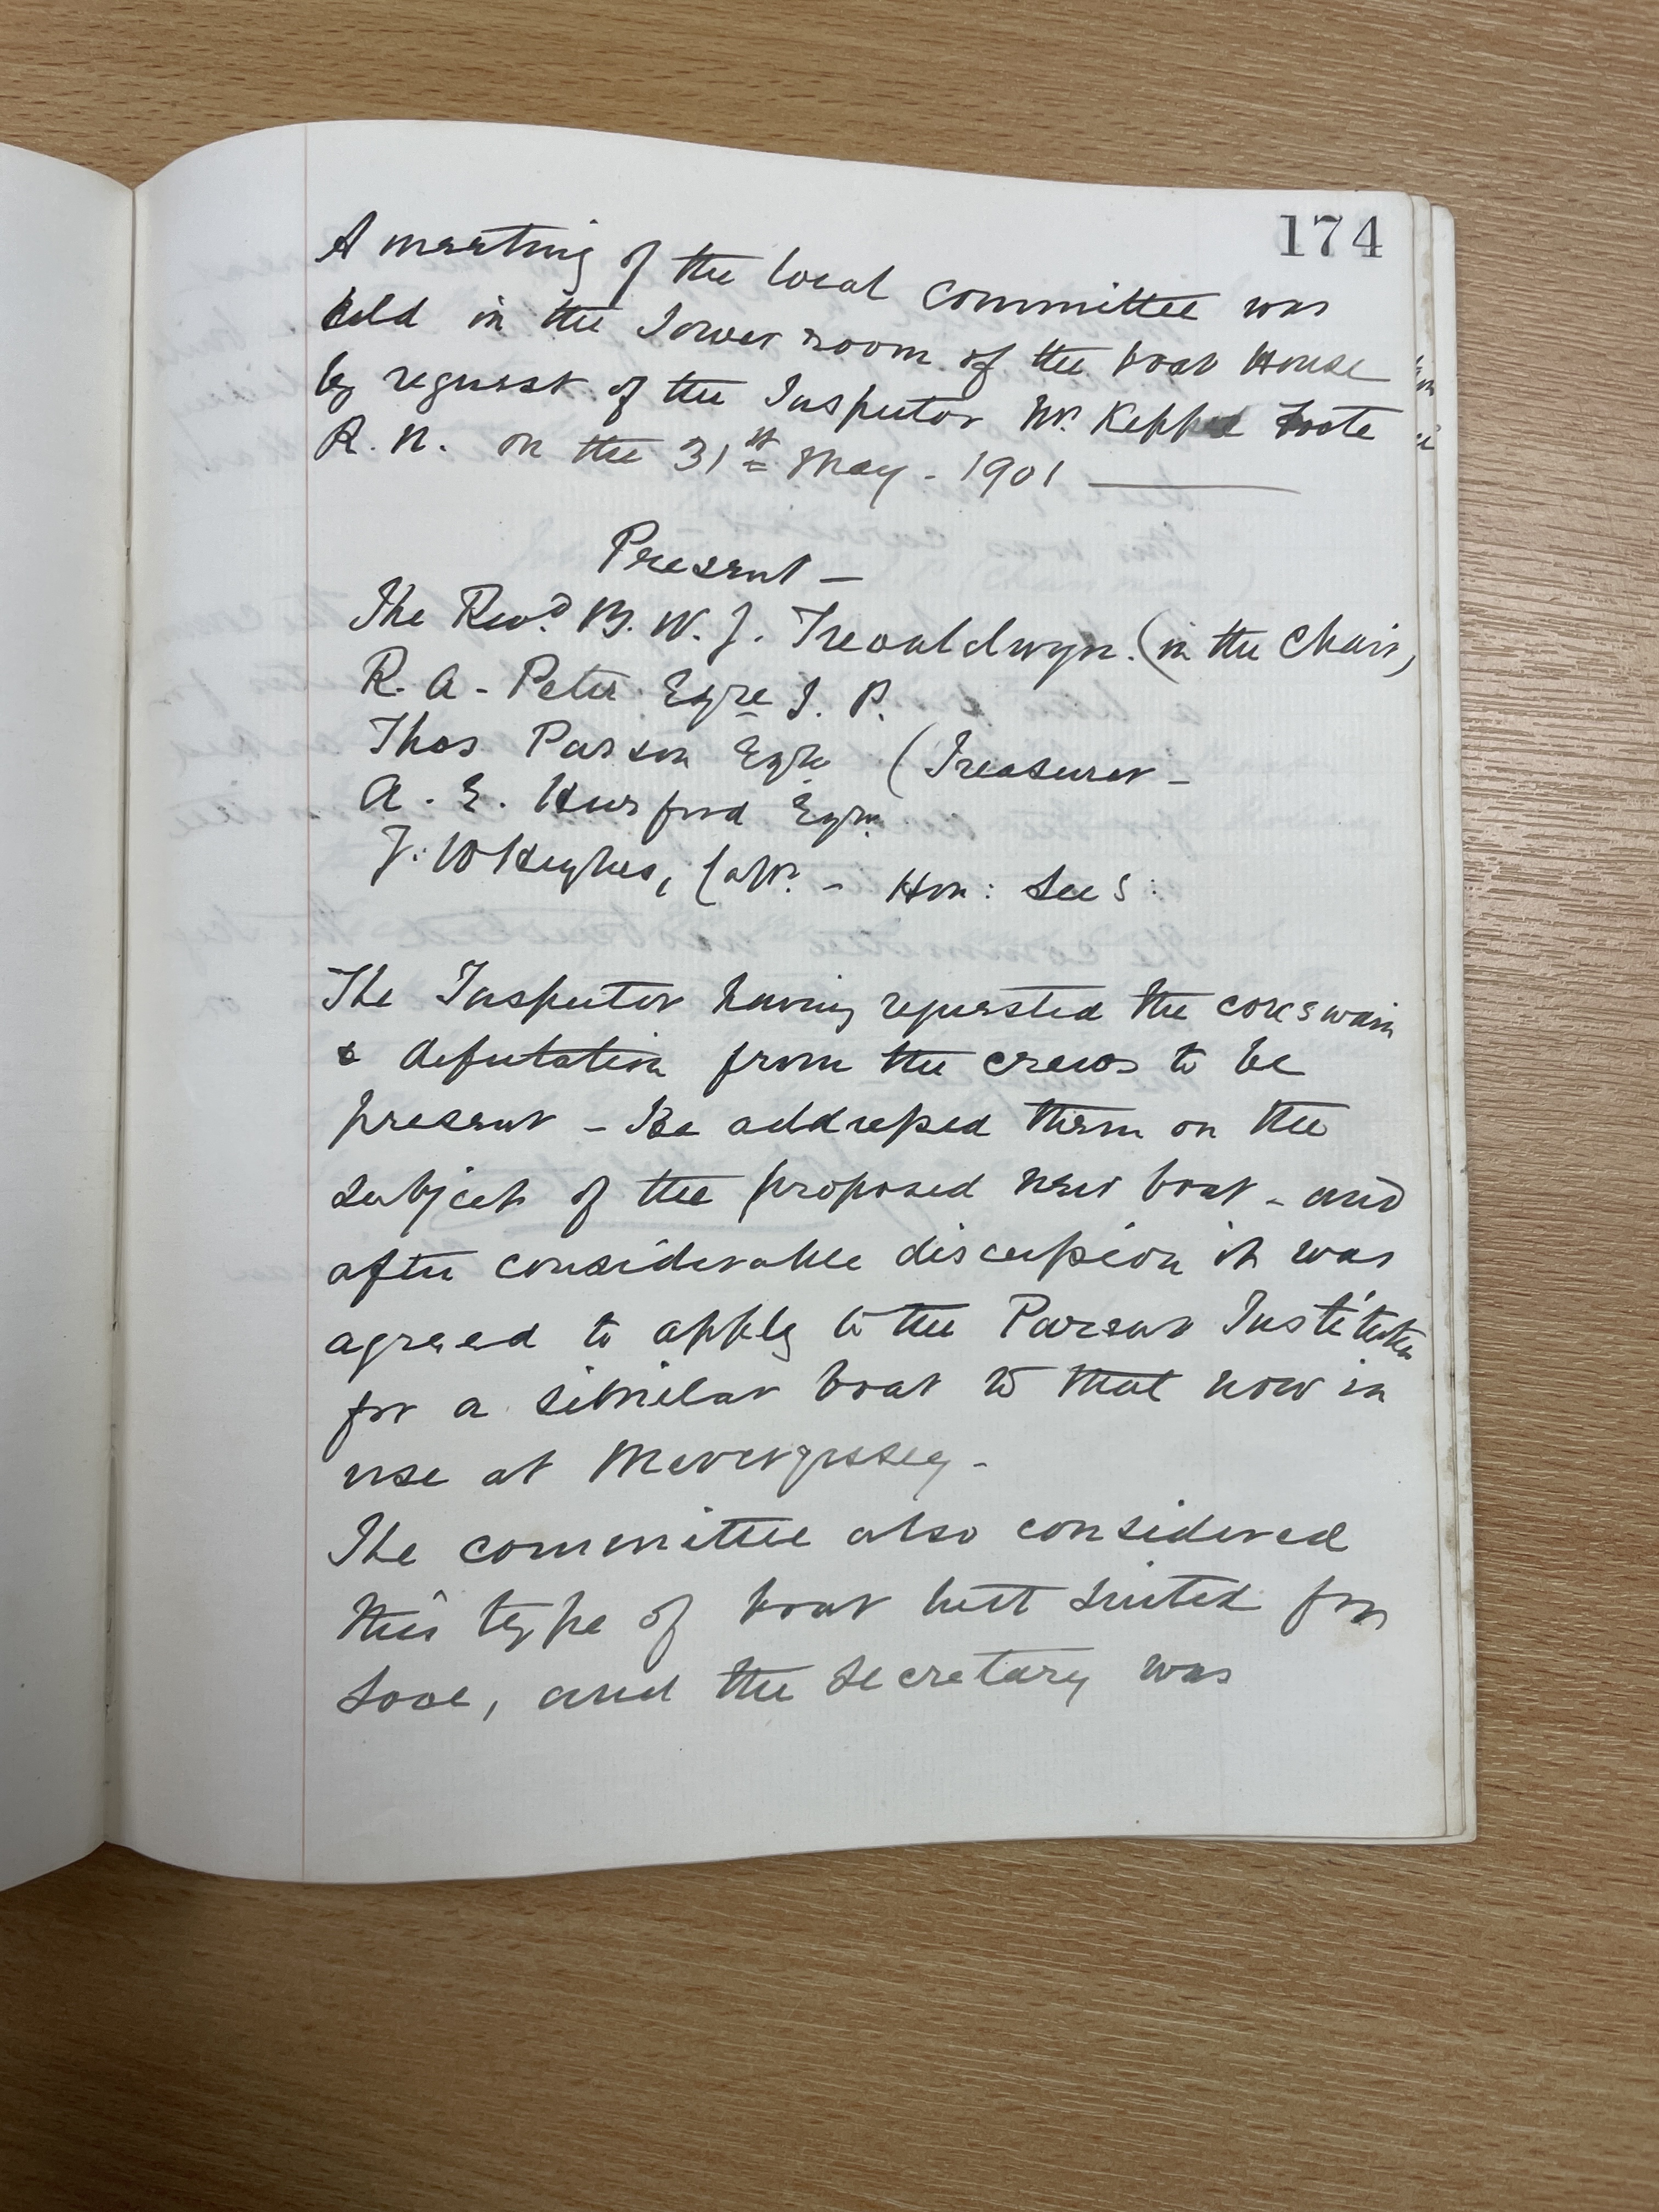 174
A meeting of the local committee was
held in the lower room of the boat House
by request of the Inspector Mr. Keppel Foote
R.N. on the 31st May - 1901
Present -
The Revd. B. W. J. Trevaldwyn. (in the Chair)
R. A - Peter Eqre J. P.
Thos Parson Eqre (Treasurer -
A. E. Hursford Eqre.
J. W Hughes, Capt. - Hon: Sec:
The Inspector having requested the coxswain
& deputation from the crews to be
present - He addressed them on the
subject of the proposed new boat - and
after considerable discussion it was
agreed to apply to the Parent Institution
for a similar boat to that now in
use at Mevergissey -
The committee also considered
this type of boat best suited for
Looe, and the Secretary was